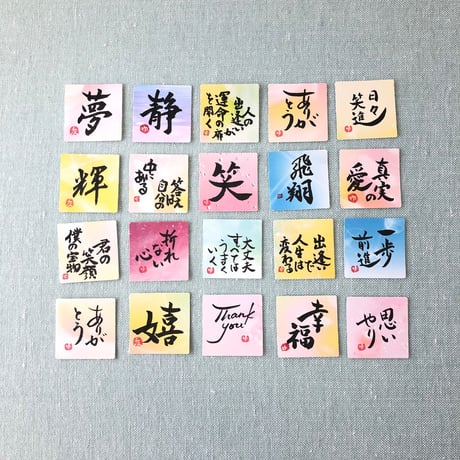 夢
静
人の
出逢いが
運命の扉
を開く
ありが
とう
日々
笑進
輝
答えは
自分の
中に
ある
笑
飛翔
真実
の愛
君の
笑顔
僕の宝物
折れ
ない
心
大丈夫
すべては
うまく
いく
出逢い
で
人生は
変わる
一歩
前進
ありが
とう
嬉
Thank
you!
幸
福
思い
やり